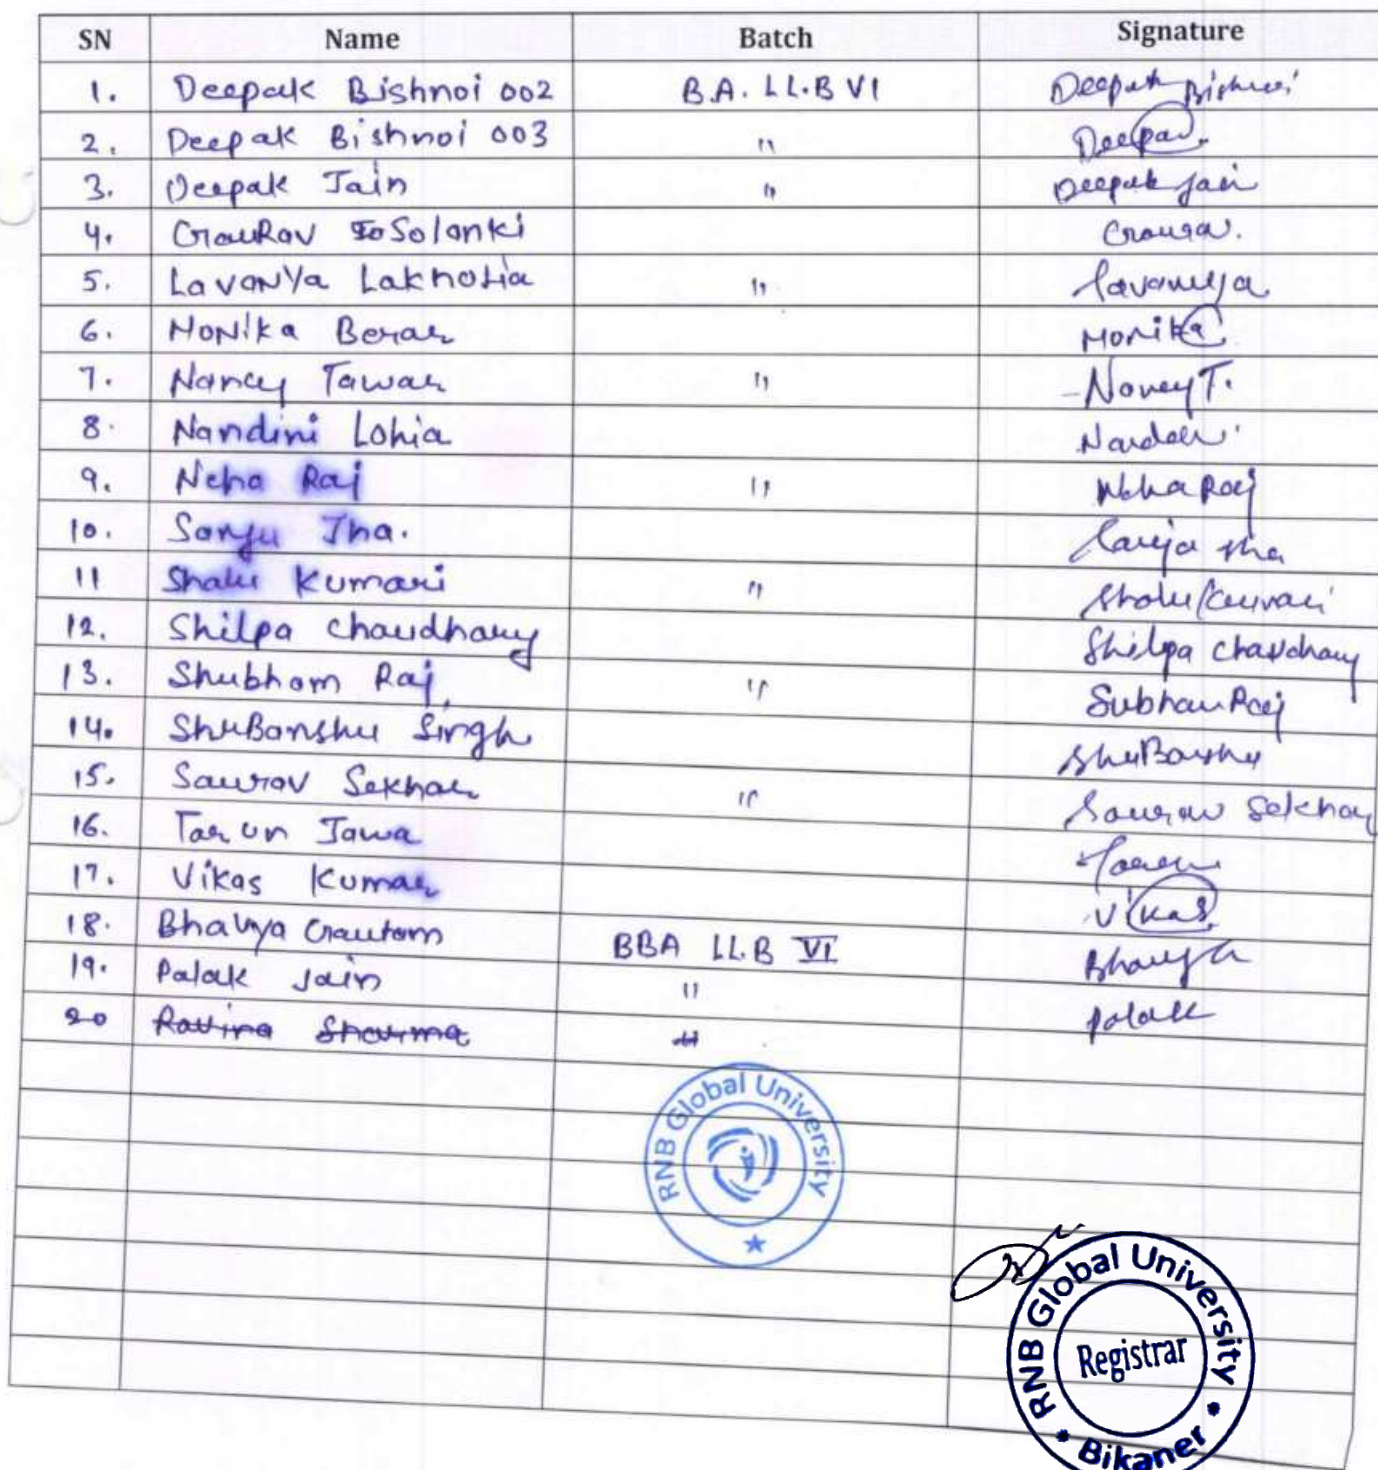 SN Name Batch Signature
1. Deepak Bishnoi 002 B.A. LL.B VI Deepak Bishnoi
2. Deepak Bishnoi 003 " Deepak
3. Deepak Jain " Deepak Jain
4. GauRav Solanki Gaurav.
5. LavanYa Lakhotia " Lavanya
6. MoNika Berar Monika
7. Nancy Tawar " Nancy T.
8. Nandini Lohia Nandini
9. Neha Raj " Neha Raj
10. Sanju Jha. Sanju Jha
11 Shalu Kumari " Shalu Kumari
12. Shilpa Choudhary Shilpa Chavdhary
13. Shubham Raj " Subham Raj
14. ShuBanshu Singh ShuBanshu
15. Saurav Sekhar " Saurav Sekhar
16. Tarun Jawa Tarun
17. Vikas Kumar Vikas
18. Bhavya Gautam BBA LL.B VI Bhavya
19. Palak Jain " Palak
20 Ravina Sharma "
RNB Global University
RNB Global University
Registrar
Bikaner